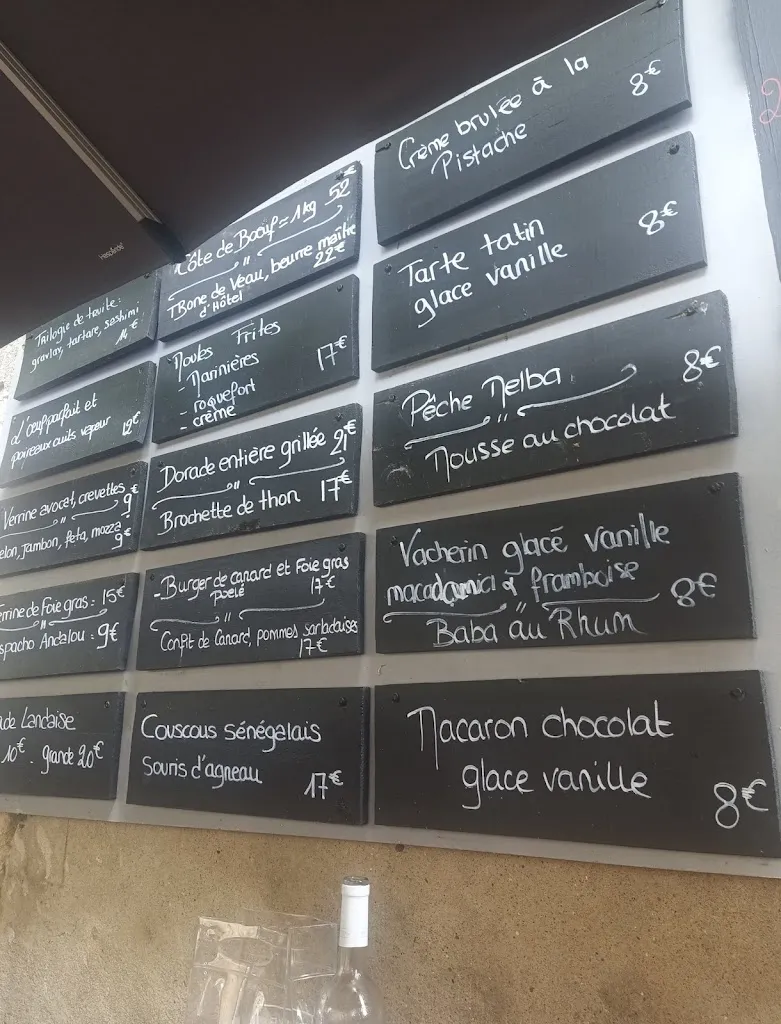 Trilogie de truite :
gravlax, tartare, sashimi
14€
L'œuf parfait et
poireaux cuits vapeur 12€
Verrine avocat, crevettes 9€
"
elon, jambon, feta, mozza 9€
errine de Foie gras = 15€
"
spacho Andalou = 9€
ade Landaise
10€ - grande 20€
Côte de Bœuf = 1kg 52€
"
TBone de Veau, beurre maître
d'Hôtel 22€
Moules Frites
- Marinières 17€
- roquefort
- crème
Dorade entière grillée 21€
"
Brochette de thon 17€
- Burger de canard et Foie gras
poelé 17€
"
- Confit de Canard, pommes sarladaises
17€
Couscous sénégalais
Souris d'agneau 17€
Crème brulée à la 8€
Pistache
Tarte tatin 8€
glace vanille
Pêche Melba 8€
"
Mousse au chocolat
Vacherin glacé vanille
macadamia & framboise
" 8€
Baba au Rhum
Macaron chocolat
glace vanille 8€